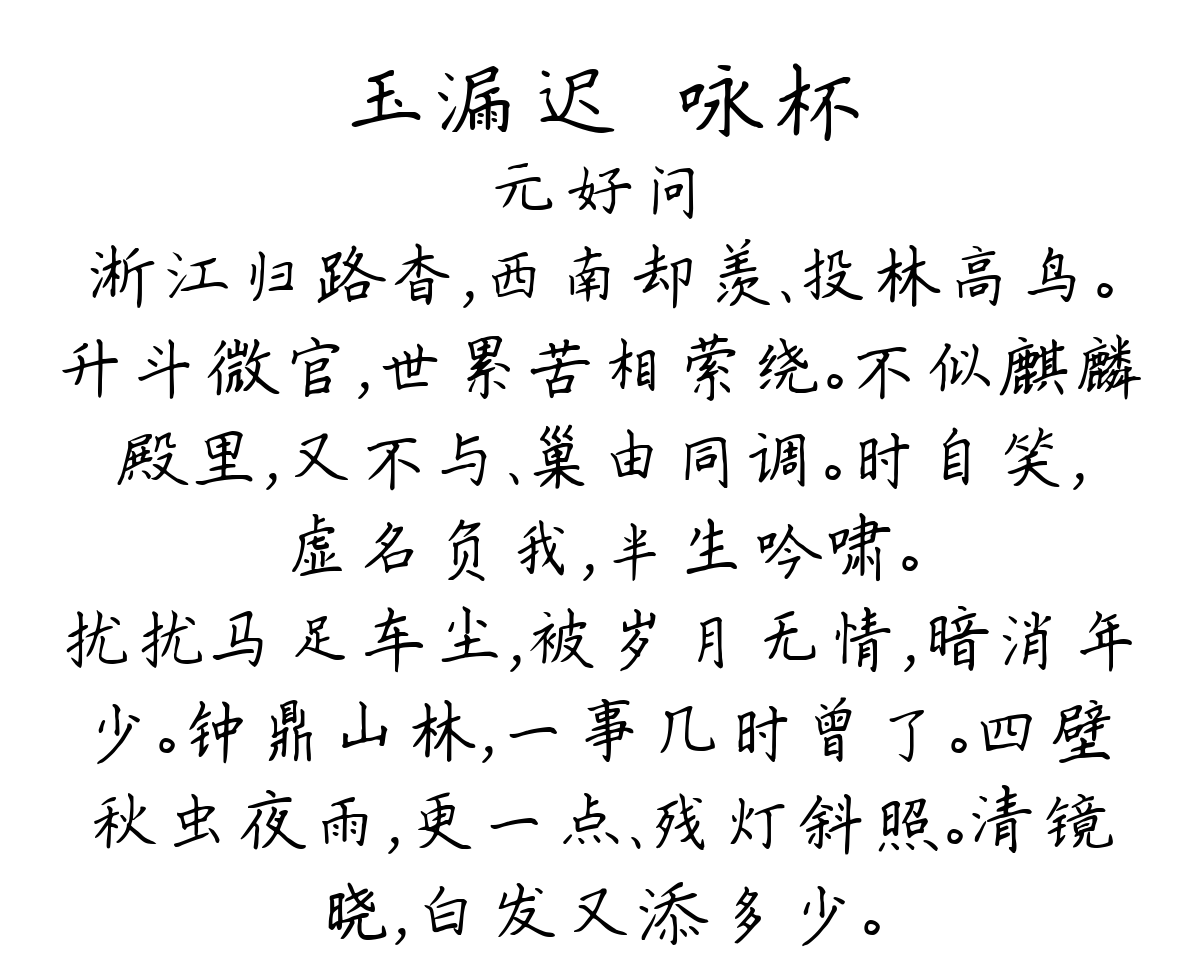 玉漏迟 咏杯
元好问
淅江归路杳,西南却羡、投林高鸟。
升斗微官,世累苦相萦绕。不似麒麟
殿里,又不与、巢由同调。时自笑,
虚名负我,半生吟啸。
扰扰马足车尘,被岁月无情,暗消年
少。钟鼎山林,一事几时曾了。四壁
秋虫夜雨,更一点、残灯斜照。清镜
晓,白发又添多少。